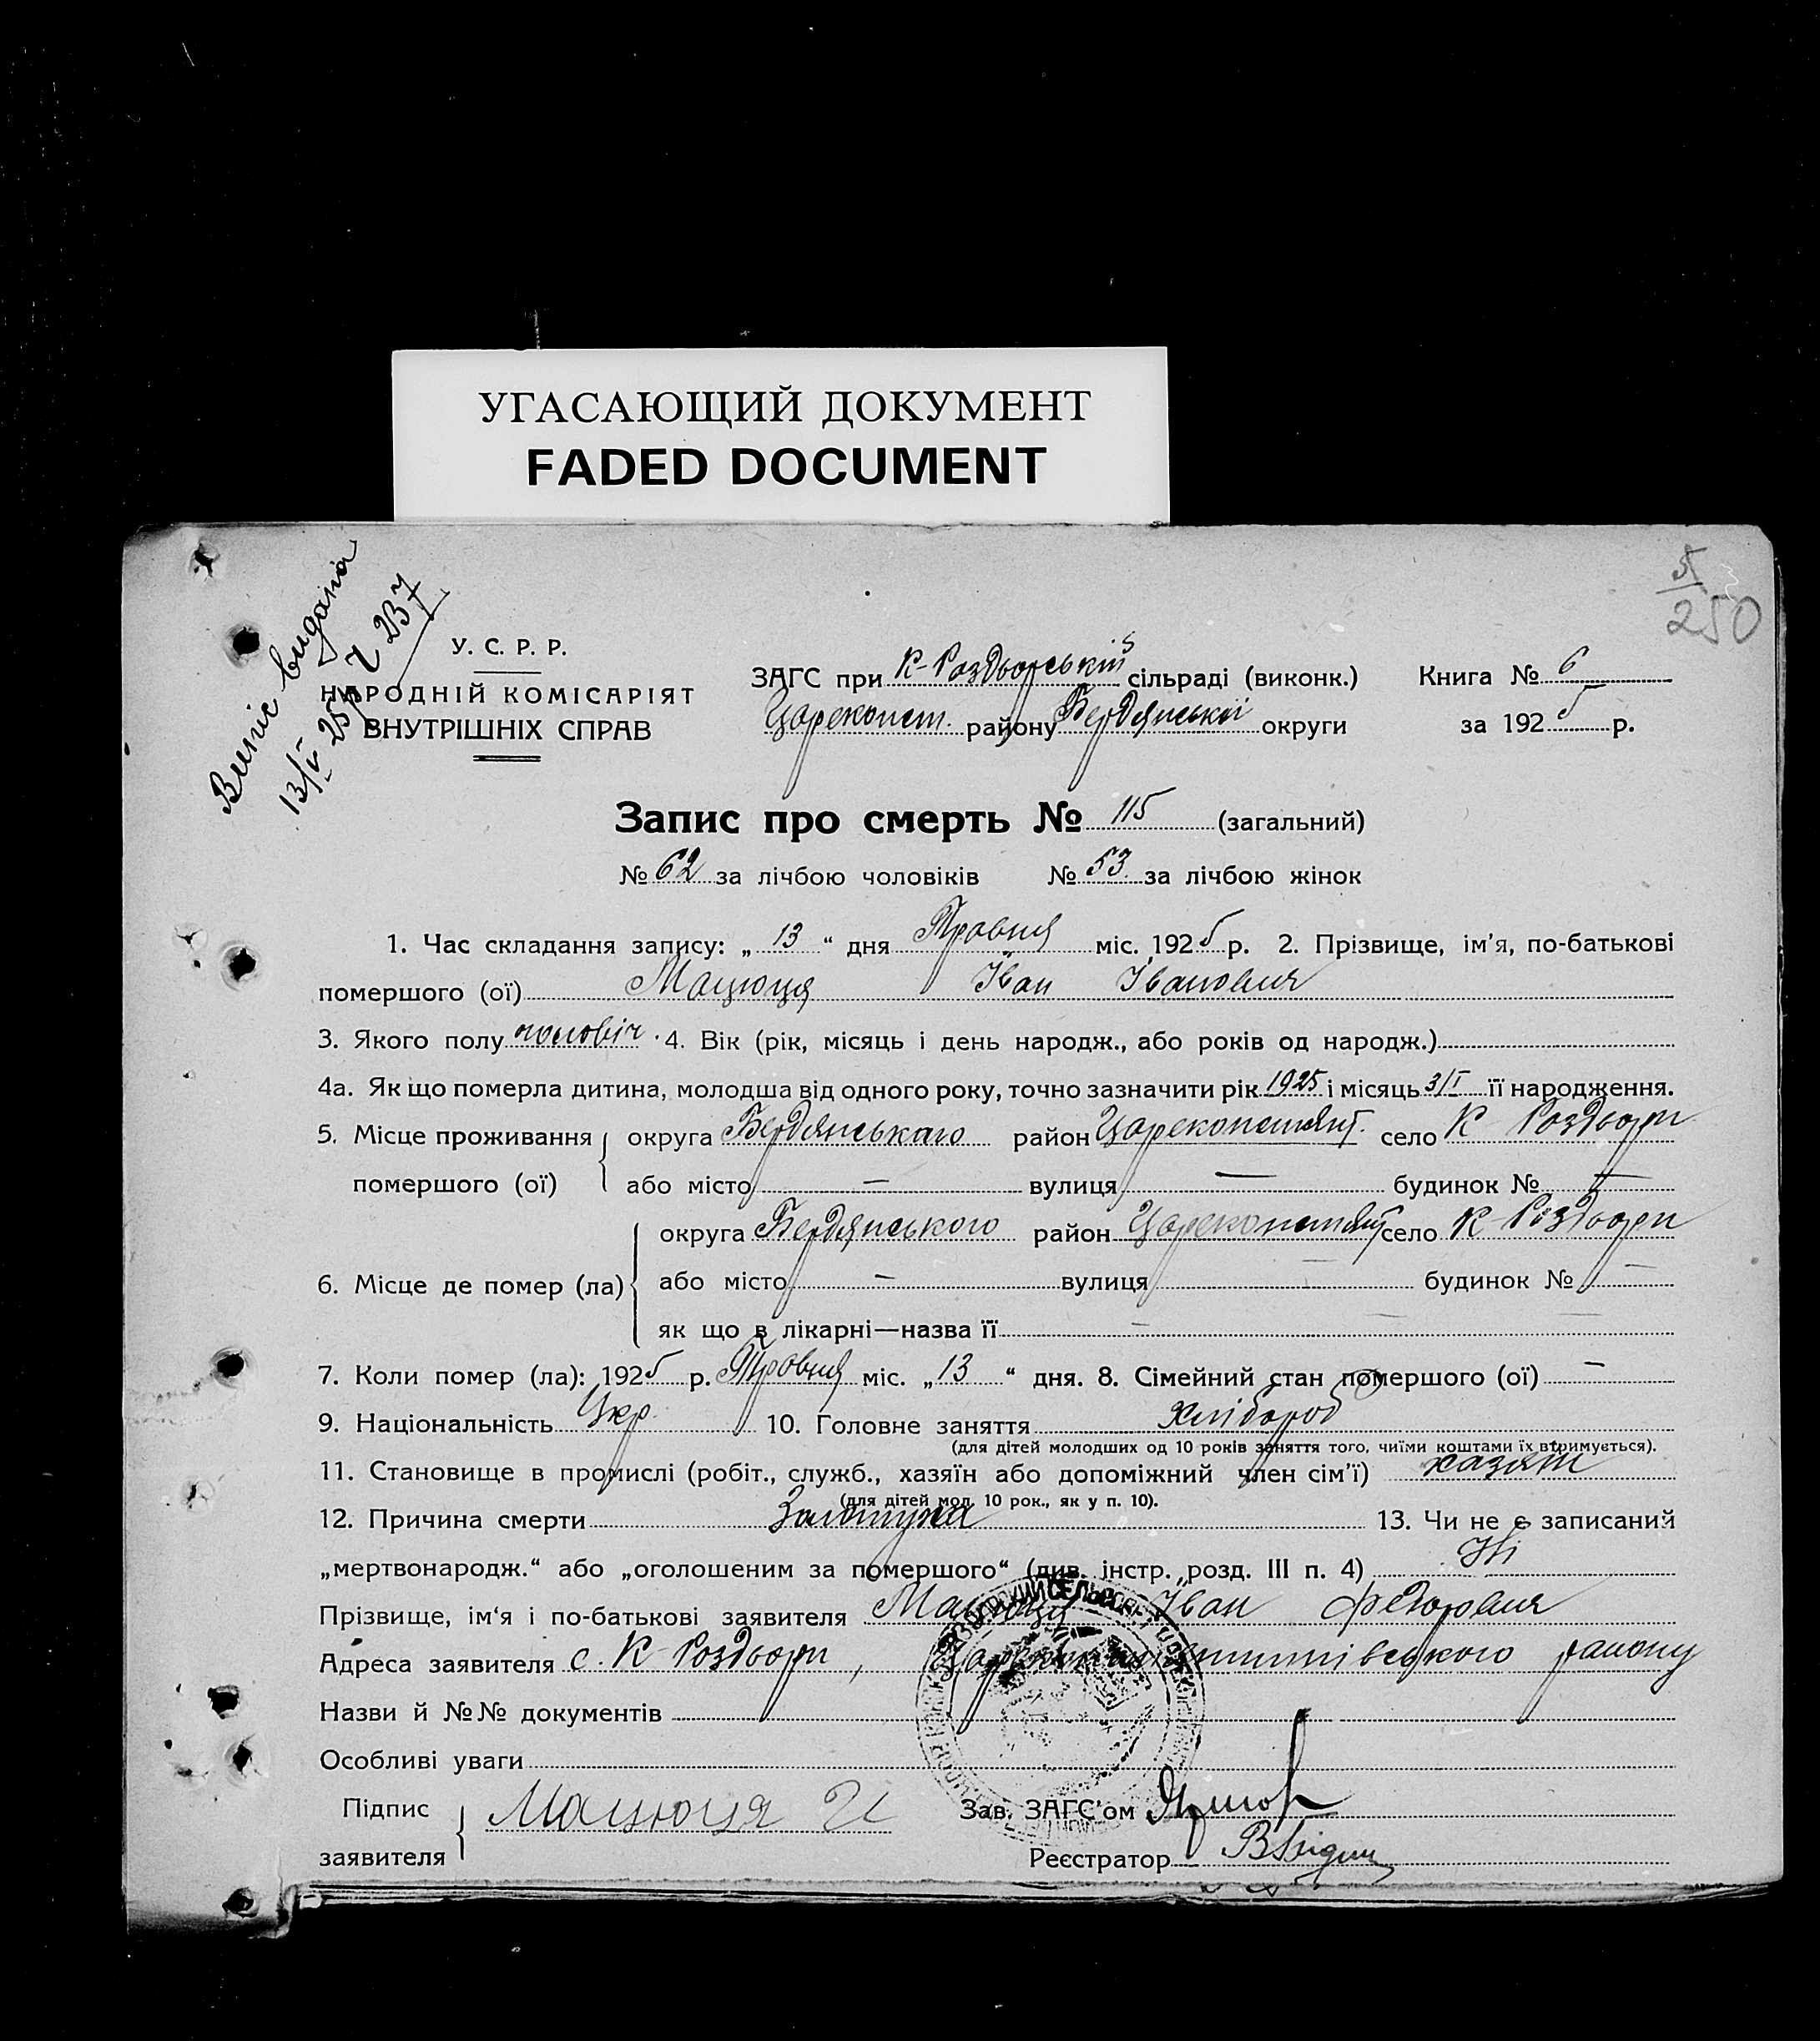 УГАСАЮЩИЙ ДОКУМЕНТ
FADED DOCUMENT
250
Випіс видана
У. С. Р. Р.
НАРОДНІЙ КОМІСАРІЯТ
ВНУТРІШНІХ СПРАВ
ЗАГС при К-Роздорській сільраді (виконк.) Книга № 6
Цареконст. району Бердянської округи за 1925 р.
Запис про смерть № 115 (загальний)
№ 62 за лічбою чоловіків № 53 за лічбою жінок
1. Час складання запису: „ 13 “ дня Травня міс. 1925 р. 2. Прізвище, ім’я, по-батькові
помершого (ої) Мацюця Іван Івановия
3. Якого полу чоловіч. 4. Вік (рік, місяць і день народж., або років од народж.)
4а. Як що померла дитина, молодша від одного року, точно зазначити рік 1925 і місяць 3/I її народження.
5. Місце проживання округа Бердянськаго район Цареконстянт. село К Роздори
помершого (ої) або місто — вулиця — будинок № —
округа Бердянського район Цареконстянт село К-Роздори
6. Місце де помер (ла) або місто — вулиця — будинок № —
як що в лікарні—назва її —
7. Коли помер (ла): 1925 р. Травня міс. „ 13 “ дня. 8. Сімейний стан помершого (ої) —
9. Національність Укр. 10. Головне заняття хлібороб
(для дітей молодших од 10 років заняття того, чиїми коштами їх втримується).
11. Становище в промислі (робіт., служб., хазяїн або допоміжний член сім’ї) хазяін
(для дітей мол. 10 рок., як у п. 10).
12. Причина смерти Золотуха 13. Чи не є записаний
„мертвонародж.“ або „оголошеним за помершого“ (див. інстр. розд. III п. 4) Ні
Прізвище, ім‘я і по-батькові заявителя Мацюця Іван Федоровия
Адреса заявителя с. К-Роздори, Царекостянтинівського району
Назви й №№ документів
Особливі уваги
Підпис заявителя Мацюця И Зав. ЗАГС’ом
Реєстратор